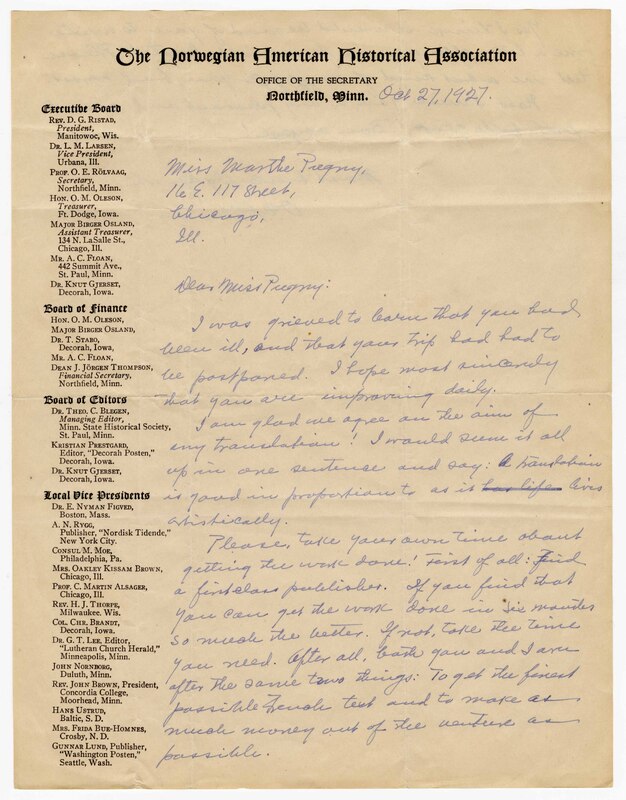 The Norwegian American Historical Association
OFFICE OF THE SECRETARY
Northfield, Minn. Oct 27, 1927.
Executive Board
REV. D. G. RISTAD,
President,
Manitowoc, Wis.
DR. L. M. LARSEN,
Vice President,
Urbana, Ill.
PROF. O. E. RÖLVAAG,
Secretary,
Northfield, Minn.
HON. O. M. OLESON,
Treasurer,
Ft. Dodge, Iowa.
MAJOR BIRGER OSLAND,
Assistant Treasurer,
134 N. LaSalle St.,
Chicago, Ill.
MR. A. C. FLOAN,
442 Summit Ave.,
St. Paul, Minn.
DR. KNUT GJERSET,
Decorah, Iowa.
Board of Finance
HON. O. M. OLESON,
MAJOR BIRGER OSLAND,
DR. T. STABO,
Decorah, Iowa.
MR. A. C. FLOAN,
DEAN J. JÖRGEN THOMPSON,
Financial Secretary,
Northfield, Minn.
Board of Editors
DR. THEO. C. BLEGEN,
Managing Editor,
Minn. State Historical Society,
St. Paul, Minn.
KRISTIAN PRESTGARD,
Editor, "Decorah Posten,"
Decorah, Iowa.
DR. KNUT GJERSET,
Decorah, Iowa.
Local Vice Presidents
DR. E. NYMAN FIGVED,
Boston, Mass.
A. N. RYGG,
Publisher, "Nordisk Tidende,"
New York City.
CONSUL M. MOE,
Philadelphia, Pa.
MRS. OAKLEY KISSAM BROWN,
Chicago, Ill.
PROF. C. MARTIN ALSAGER,
Chicago, Ill.
REV. H. J. THORPE,
Milwaukee. Wis.
COL. CHR. BRANDT,
Decorah, Iowa.
DR. G. T. LEE, Editor,
"Lutheran Church Herald,"
Minneapolis, Minn.
JOHN NORNBORG,
Duluth, Minn.
REV. JOHN BROWN, President,
Concordia College,
Moorhead, Minn.
HANS USTRUD,
Baltic, S. D.
MRS. FRIDA BUE-HOMNES,
Crosby, N. D.
GUNNAR LUND, Publisher,
"Washington Posten,"
Seattle, Wash.
Miss Marthe Pugny,
16 E. 117 Street,
Chicago,
Ill.
Dear Miss Pugny:
I was grieved to learn that you had
been ill, and that your trip had had to
be postponed. I hope most sincerely
that you are improving daily.
I am glad we agree on the aim of
any translation! I would sum it all
up in one sentence and say: A translation
is good in proportion to as it has life lives
artistically.
Please, take your own time about
getting the work done! First of all: Find
a firstclass publisher. If you find that
you can get the work done in six months
so much the better. If not, take the time
you need. After all, both you and I are
after the same two things: To get the finest
possible French text and to make as
much money out of the venture as
possible.